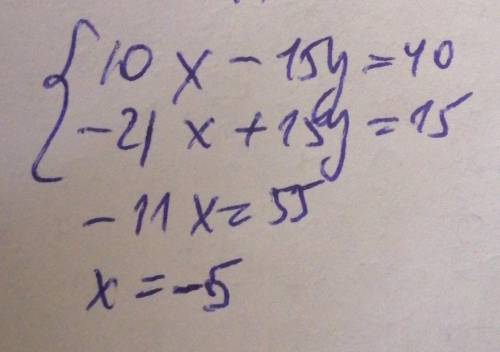 10x - 15y = 40
-21x + 15y = 15
-11x = 55
x = -5